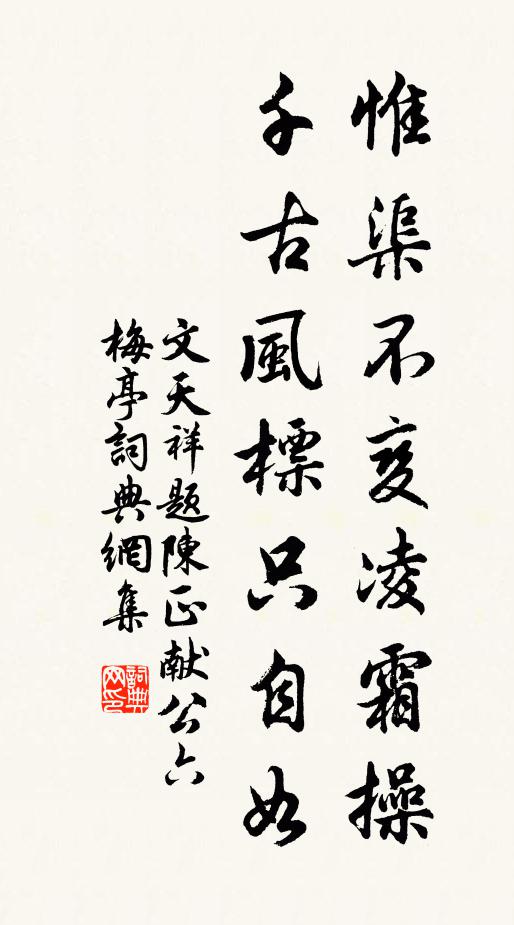 惟渠不变凌霜操
千古風標只自如
文天祥题陳正献公六
梅亭詞典網集
詞典网印